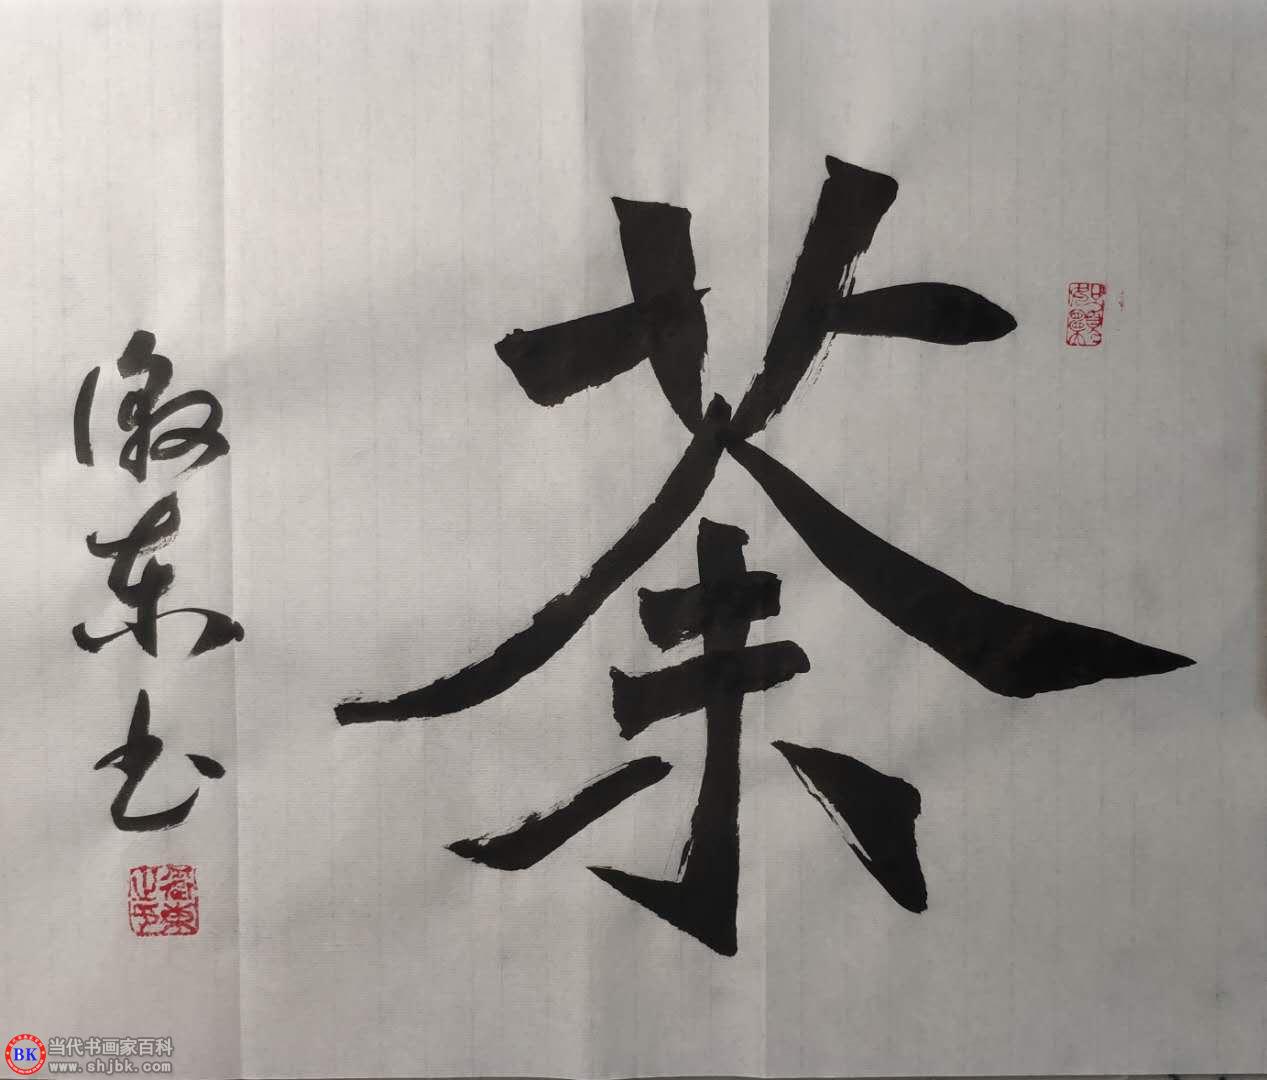 荼
东书
東之印
BK 当代书画家百科
www.shjbk.com